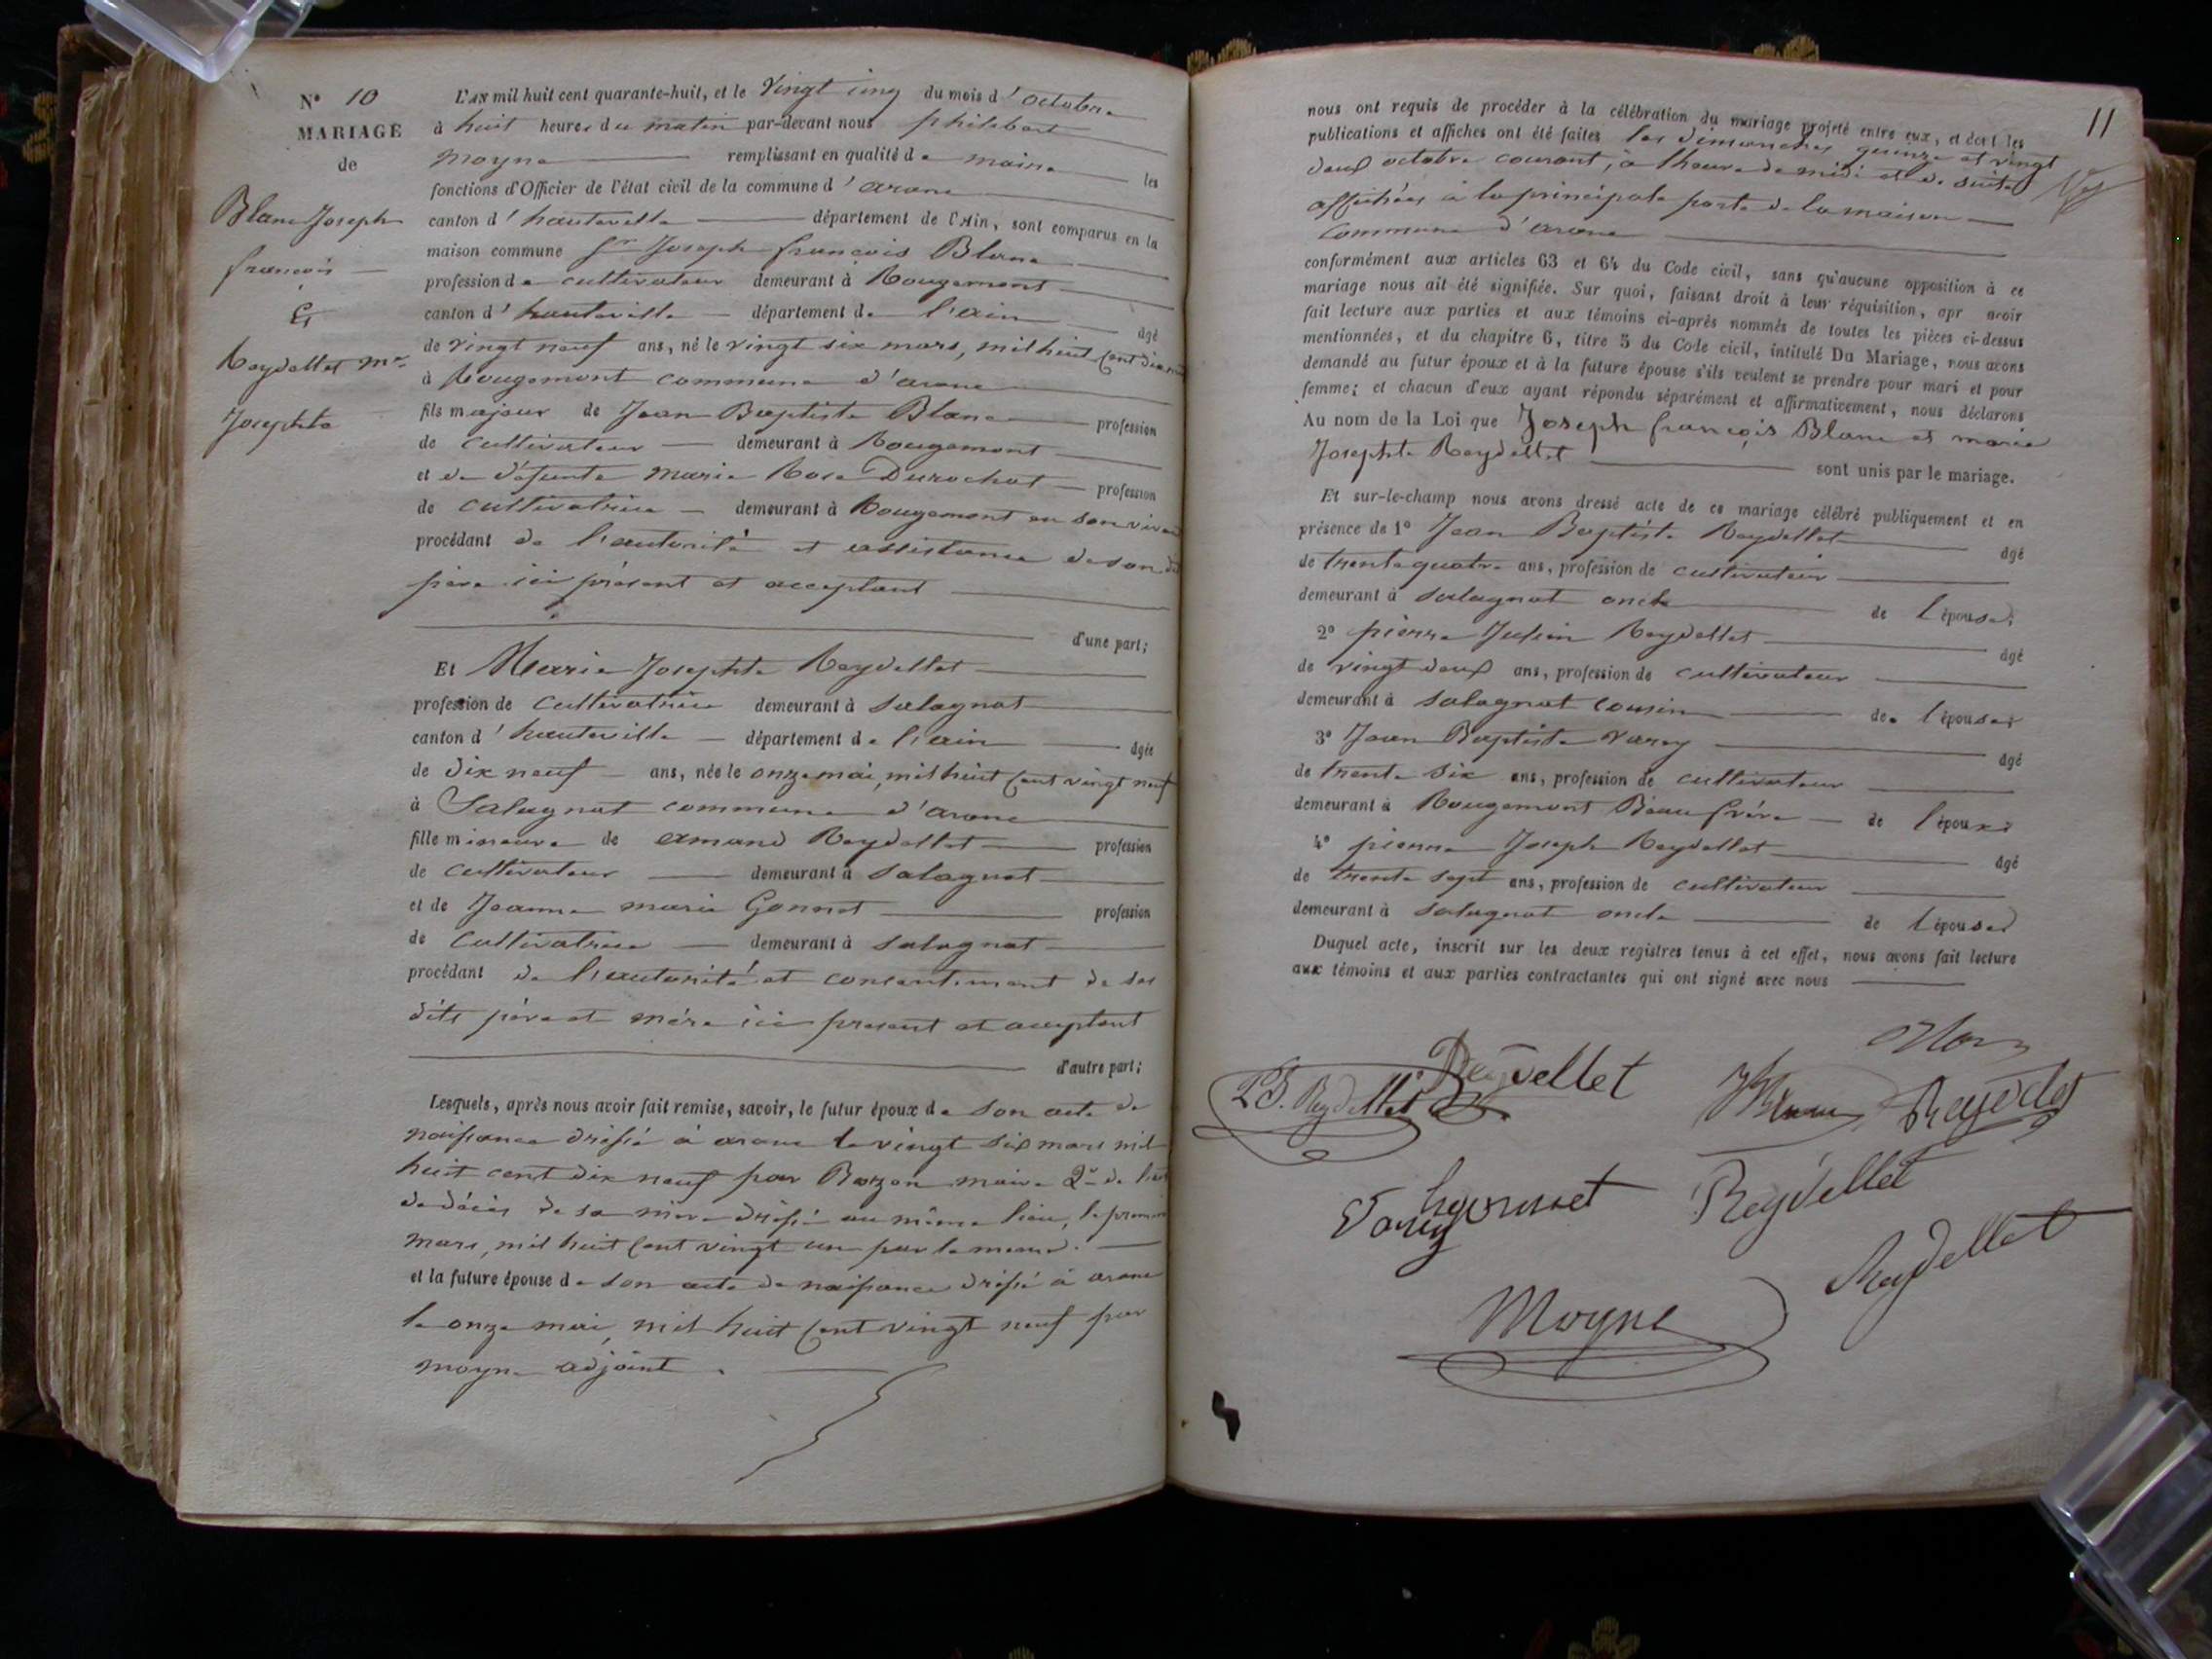 N° 10
MARIAGE
de
Blanc Joseph
françois
Et
Reydellet Mie
Josephte
L'AN mil huit cent quarante-huit, et le Vingt cinq du mois d'octobre
à huit heures du matin par-devant nous philibert
moyne remplissant en qualité de maire les
fonctions d'Officier de l'état civil de la commune d'arane
canton d'hauteville département de l'Ain, sont comparus en la
maison commune Sr Joseph françois Blanc
profession de cultivateur demeurant à Rougemont
canton d'hauteville département de l'ain âgé
de vingt neuf ans, né le vingt six mars, mil huit cent dix neuf
à Rougemont commune d'arane
fils majeur de Jean Baptiste Blanc profession
de cultivateur demeurant à Rougemont
et de défunte Marie Rose Durochat profession
de cultivatrice demeurant à Rougemont en son vivant
procédant de l'autorité et assistance de son dit
père ici présent et acceptant
d'une part;
Et Marie Josephte Reydellet
profession de Cultivatrice demeurant à Salagnat
canton d'hauteville département de l'ain âgée
de dix neuf ans, née le onze mai, mil huit cent vingt neuf
à Salagnat commune d'arane
fille mineure de amand Reydellet profession
de cultivateur demeurant à Salagnat
et de Jeanne marie Gonnet profession
de Cultivatrice demeurant à Salagnat
procédant de l'autorité et consentement de ses
dits père et mère ici present et acceptant
d'autre part;
Lesquels, après nous avoir fait remise, savoir, le futur époux de son acte de
naissance dressé à arane le vingt six mars mil
huit cent dix neuf par Bozon maire 2° de l'acte
de décès de sa mère dressé au même lieu, le premier
mars, mil huit cent vingt un par le meme.
et la future épouse de son acte de naissance dressé à arane
le onze mai, mil huit cent vingt neuf par
moyne adjoint.
11
nous ont requis de procéder à la célébration du mariage projeté entre eux, et dont les
publications et affiches ont été faites les dimanches quinze et vingt
deux octobre courant, à l'heure de midi et de suite
affichées à la principale porte de la maison
commune d'arane
conformément aux articles 63 et 64 du Code civil, sans qu'aucune opposition à ce
mariage nous ait été signifiée. Sur quoi, faisant droit à leur réquisition, apr avoir
fait lecture aux parties et aux témoins ci-après nommés de toutes les pièces ci-dessus
mentionnées, et du chapitre 6, titre 5 du Code civil, intitulé Du Mariage, nous avons
demandé au futur époux et à la future épouse s'ils veulent se prendre pour mari et pour
femme; et chacun d'eux ayant répondu séparément et affirmativement, nous déclarons
Au nom de la Loi que Joseph françois Blanc et marie
Josephte Reydellet sont unis par le mariage.
Et sur-le-champ nous avons dressé acte de ce mariage célébré publiquement et en
présence de 1° Jean Baptiste Reydellet âgé
de trente quatre ans, profession de cultivateur
demeurant à Salagnat oncle de l'épouse;
2° pierre Julien Reydellet âgé
de vingt deux ans, profession de cultivateur
demeurant à Salagnat cousin de l'épouse
3° Jean Baptiste Varey âgé
de trente six ans, profession de cultivateur
demeurant à Rougemont Beau frère de l'époux
4° pierre Joseph Reydellet âgé
de trente sept ans, profession de cultivateur
demeurant à Salagnat oncle de l'épouse
Duquel acte, inscrit sur les deux registres tenus à cet effet, nous avons fait lecture
aux témoins et aux parties contractantes qui ont signé avec nous
Reydellet
Reydellet
Varey
Reydellet
Reydellet
Moyne